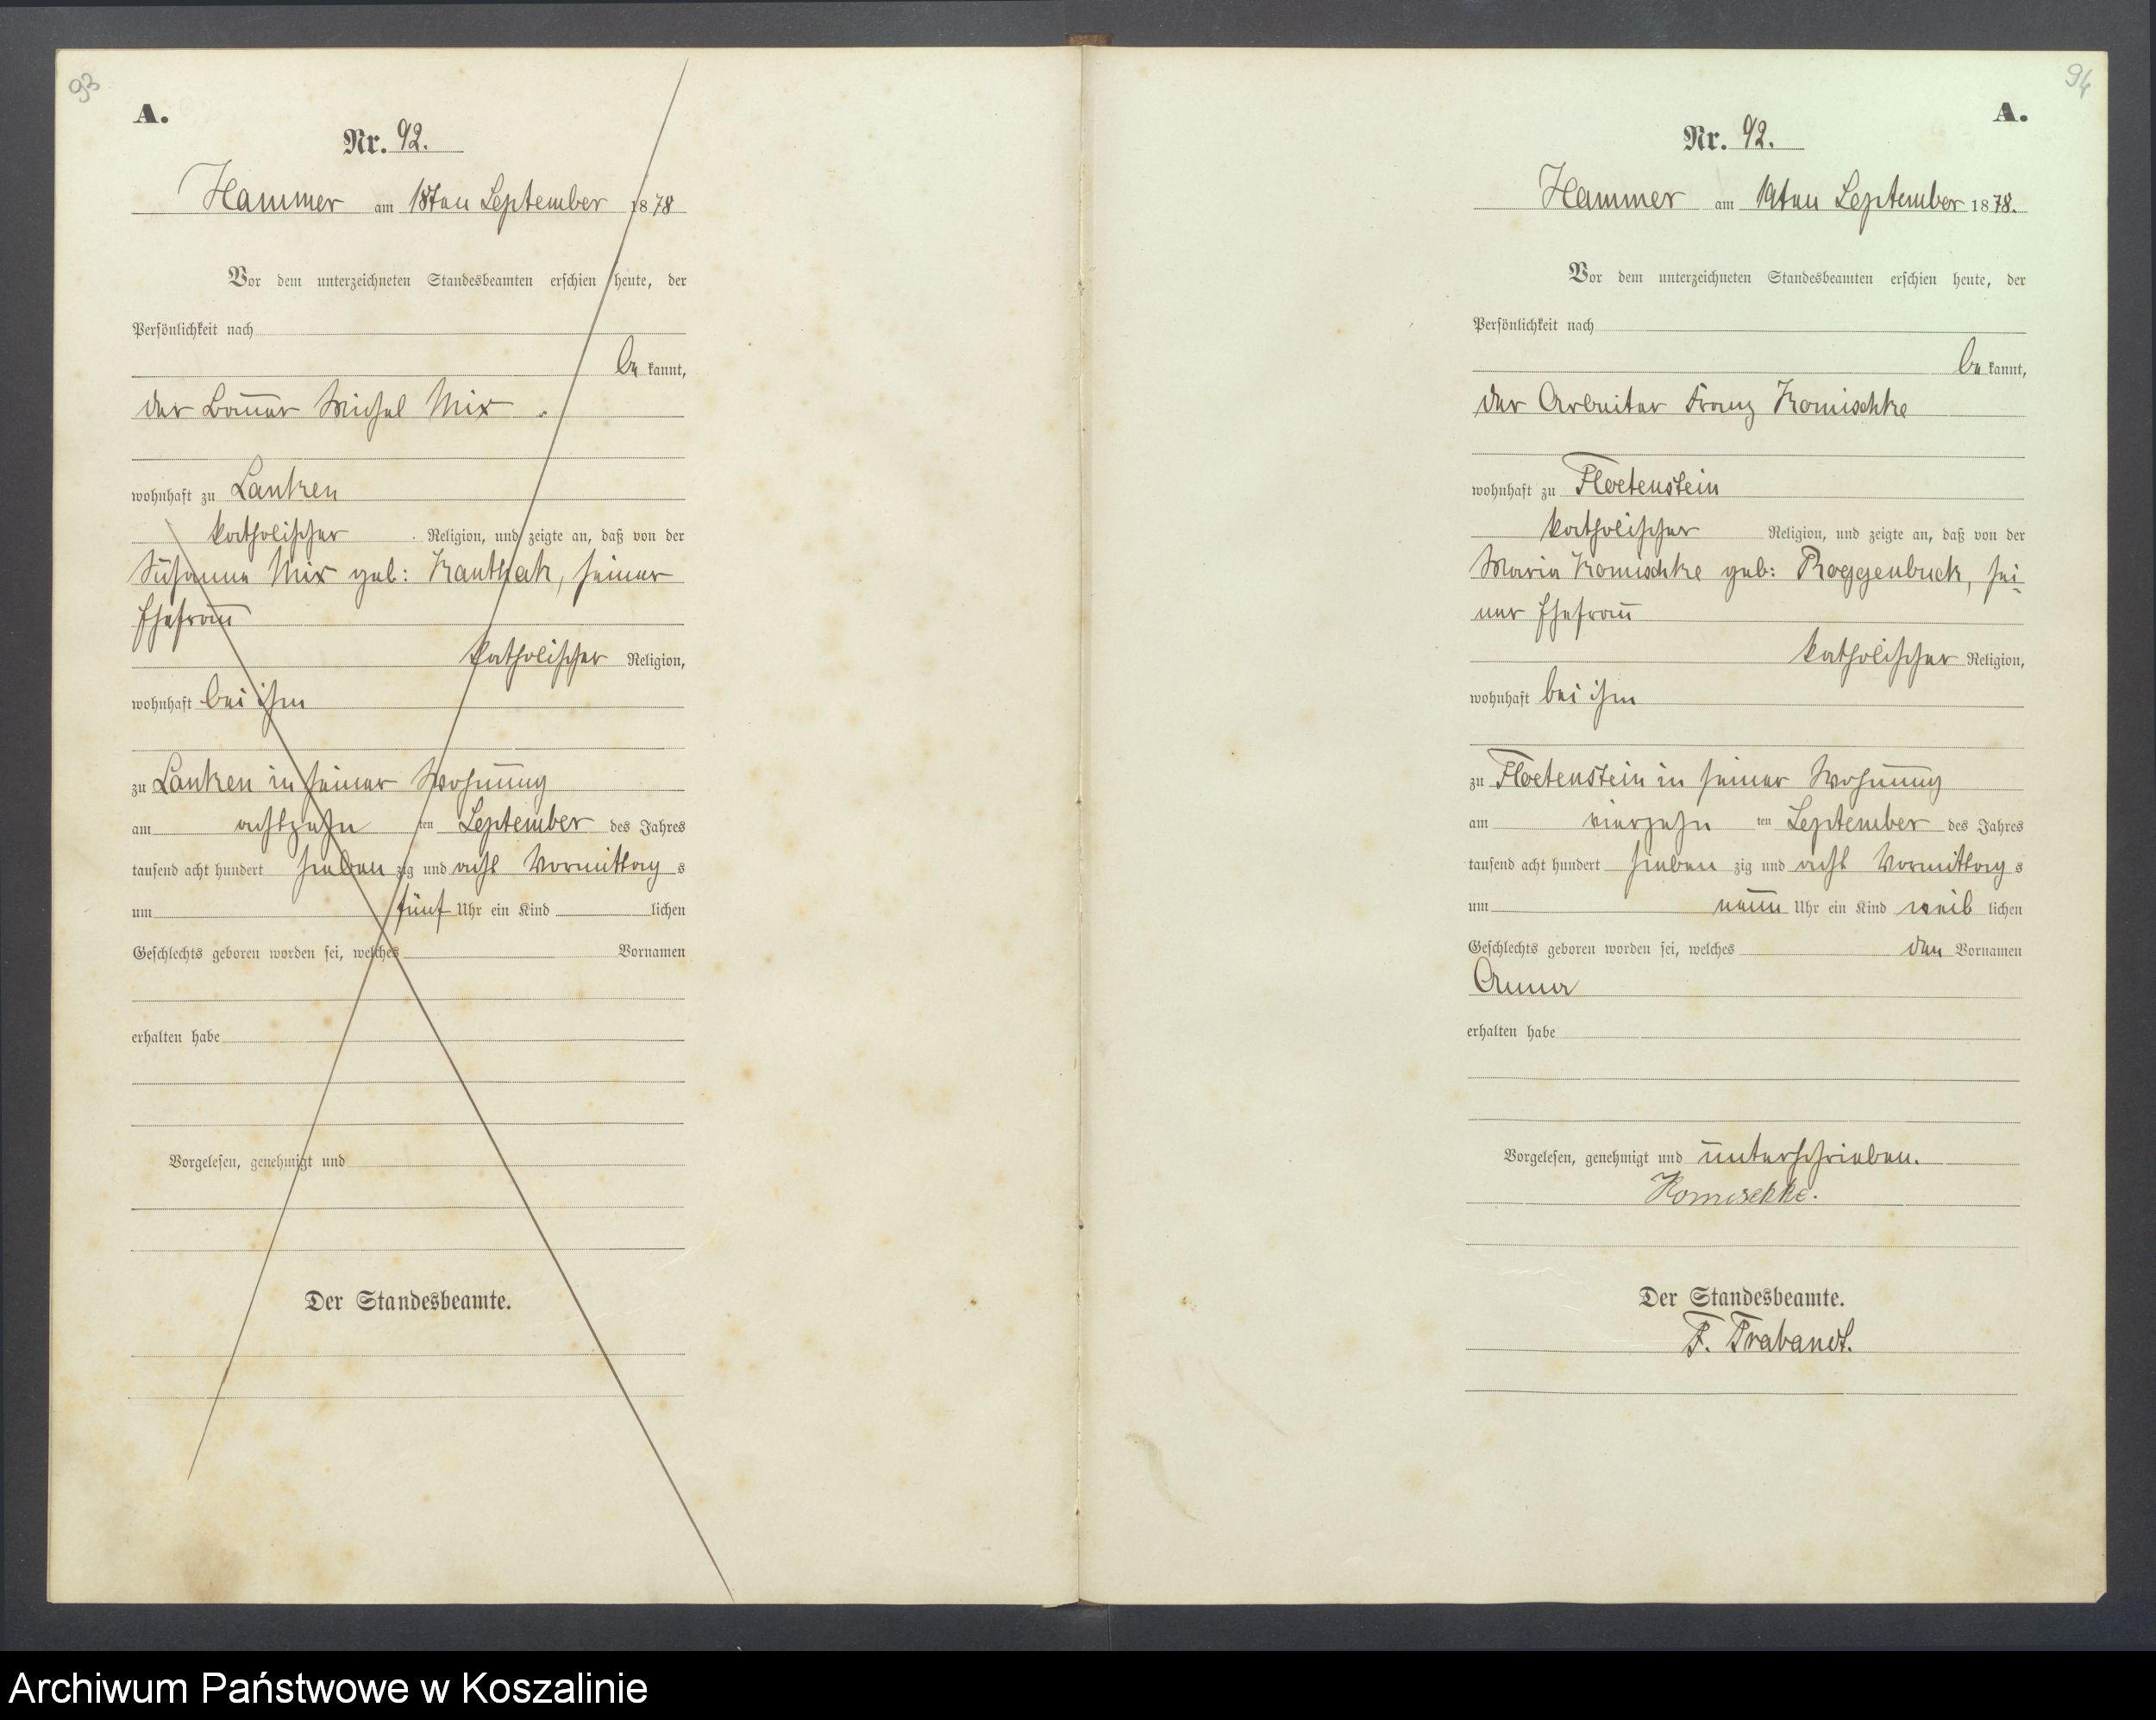 93
A.
Nr. 92.
Hammer am 18ten September 1878
Vor dem unterzeichneten Standesbeamten erschien heute, der
Persönlichkeit nach
be kannt,
der Bauer Michel Mix
wohnhaft zu Lanken
katholischer Religion, und zeigte an, daß von der
Susanna Mix geb: Kanthak, seiner
Ehefrau
katholischer Religion,
wohnhaft bei ihm
zu Lanken in seiner Wohnung
am achtzehn ten September des Jahres
tausend acht hundert sieben zig und acht Vormittag s
um fünf Uhr ein Kind lichen
Geschlechts geboren worden sei, welches Vornamen
erhalten habe
Vorgelesen, genehmigt und
Der Standesbeamte.
94
A.
Nr. 92.
Hammer am 19ten September 1878.
Vor dem unterzeichneten Standesbeamten erschien heute, der
Persönlichkeit nach
be kannt,
der Arbeiter Franz Komischke
wohnhaft zu Floetenstein
katholischer Religion, und zeigte an, daß von der
Maria Komischke geb: Roggenbuck, sei-
ner Ehefrau
katholischer Religion,
wohnhaft bei ihm
zu Floetenstein in seiner Wohnung
am vierzehn ten September des Jahres
tausend acht hundert sieben zig und acht Vormittag s
um neun Uhr ein Kind weib lichen
Geschlechts geboren worden sei, welches den Vornamen
Anna
erhalten habe
Vorgelesen, genehmigt und unterschrieben.
Komischke.
Der Standesbeamte.
F. Trabandt.
Archiwum Państwowe w Koszalinie